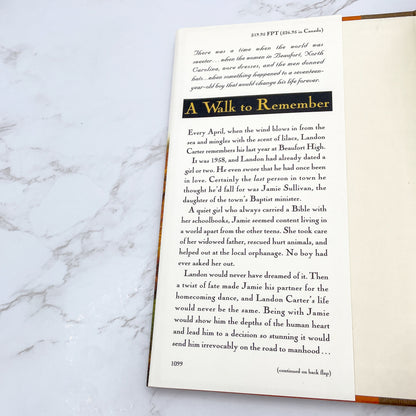 $19.95 FPT ($24.95 in Canada)
There was a time when the world was
sweeter...when the women in Beaufort, North
Carolina, wore dresses, and the men donned
hats...when something happened to a seventeen-
year-old boy that would change his life forever.
A Walk to Remember
Every April, when the wind blows in from the
sea and mingles with the scent of lilacs, Landon
Carter remembers his last year at Beaufort High.
It was 1958, and Landon had already dated a
girl or two. He even swore that he had once been
in love. Certainly the last person in town he
thought he'd fall for was Jamie Sullivan, the
daughter of the town's Baptist minister.
A quiet girl who always carried a Bible with
her schoolbooks, Jamie seemed content living in
a world apart from the other teens. She took care
of her widowed father, rescued hurt animals, and
helped out at the local orphanage. No boy had
ever asked her out.
Landon would never have dreamed of it. Then
a twist of fate made Jamie his partner for the
homecoming dance, and Landon Carter's life
would never be the same. Being with Jamie
would show him the depths of the human heart
and lead him to a decision so stunning it would
send him irrevocably on the road to manhood...
1099
(continued on back flap)